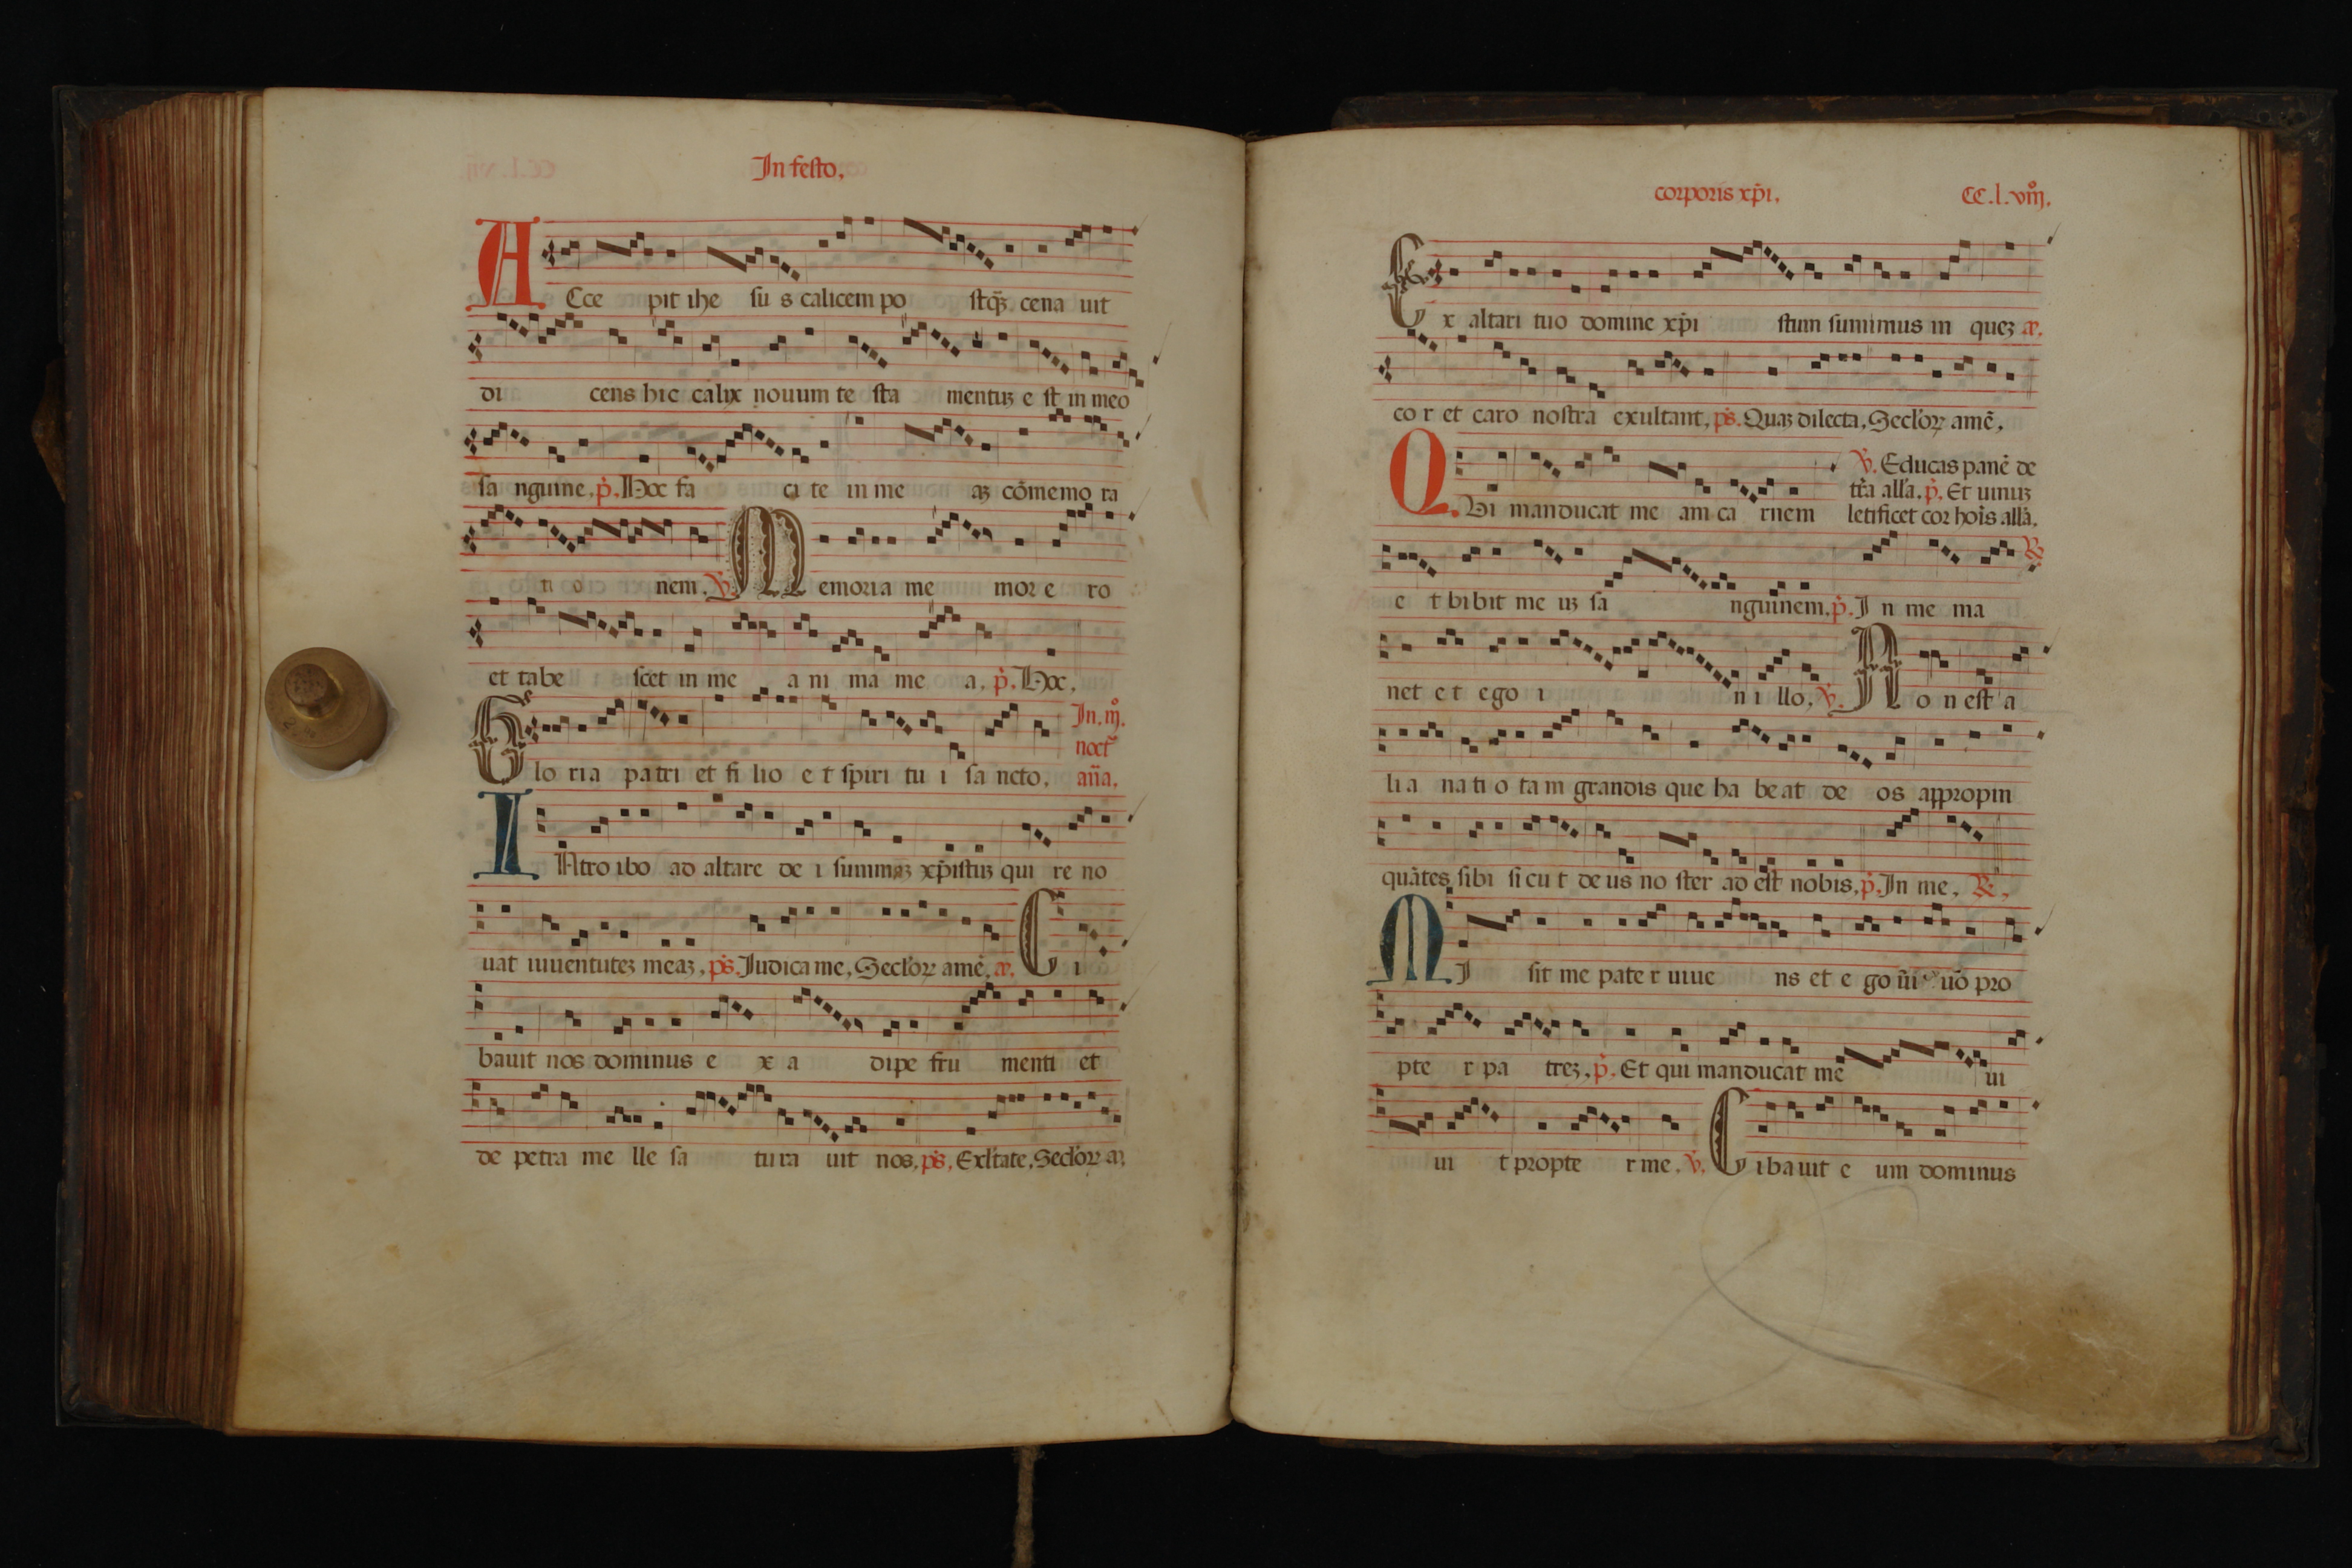 In festo,
ACce pit ihe su s calicem po stqꝫ cena uit
di cens hic calix nouum te sta mentuꝫ e st in meo
sa nguine, p̓. Hoc fa ci te in me aꝫ cōmemo ra
ti o nem. v̓. Memoria me mor e ro
et tabe scet in me a ni ma me a, p̓. Hoc,
Glo ria patri et fi lio e t spiri tu i sa ncto,
In. iij̊.
noct̄
an̄a,
INtro ibo ad altare de i summaꝫ xp̄istuꝫ qui re no
uat iuuentuteꝫ meaꝫ, ps̄. Iudica me, Secl'oꝝ amē, æ. Ci
bauit nos dominus e x a dipe fru menti et
de petra me lle sa tura uit nos, ps̄, Exl'tate, Secl'oꝝ a,
corporis xp̄i,
CC.l.viij̊.
Ex altari tuo domine xp̄i stum sumimus in queꝫ æ.
co r et caro nostra exultant, ps̄. Quaꝫ dilecta, Secl'oꝝ amē,
Q.Vi manducat me am ca rnem
v̓. Educas panē de
tr̄a all'a, p̓. Et uinuꝫ
letificet cor hoīs all'a.
e t bibit me uꝫ sa nguinem, p̓. I n me ma
℞
net e t ego i n i llo, v̓. No n est a
li a na ti o ta m grandis que ha beat de os appropin
quātes sibi si cu t de us no ster ad est nobis, p̓. In me, ℞,
MI sit me pate r uiue ns et e go ūi uō pro
pte r pa treꝫ, p̓. Et qui manducat me ui
ui t propte r me, v̓. Cibauit e um dominus